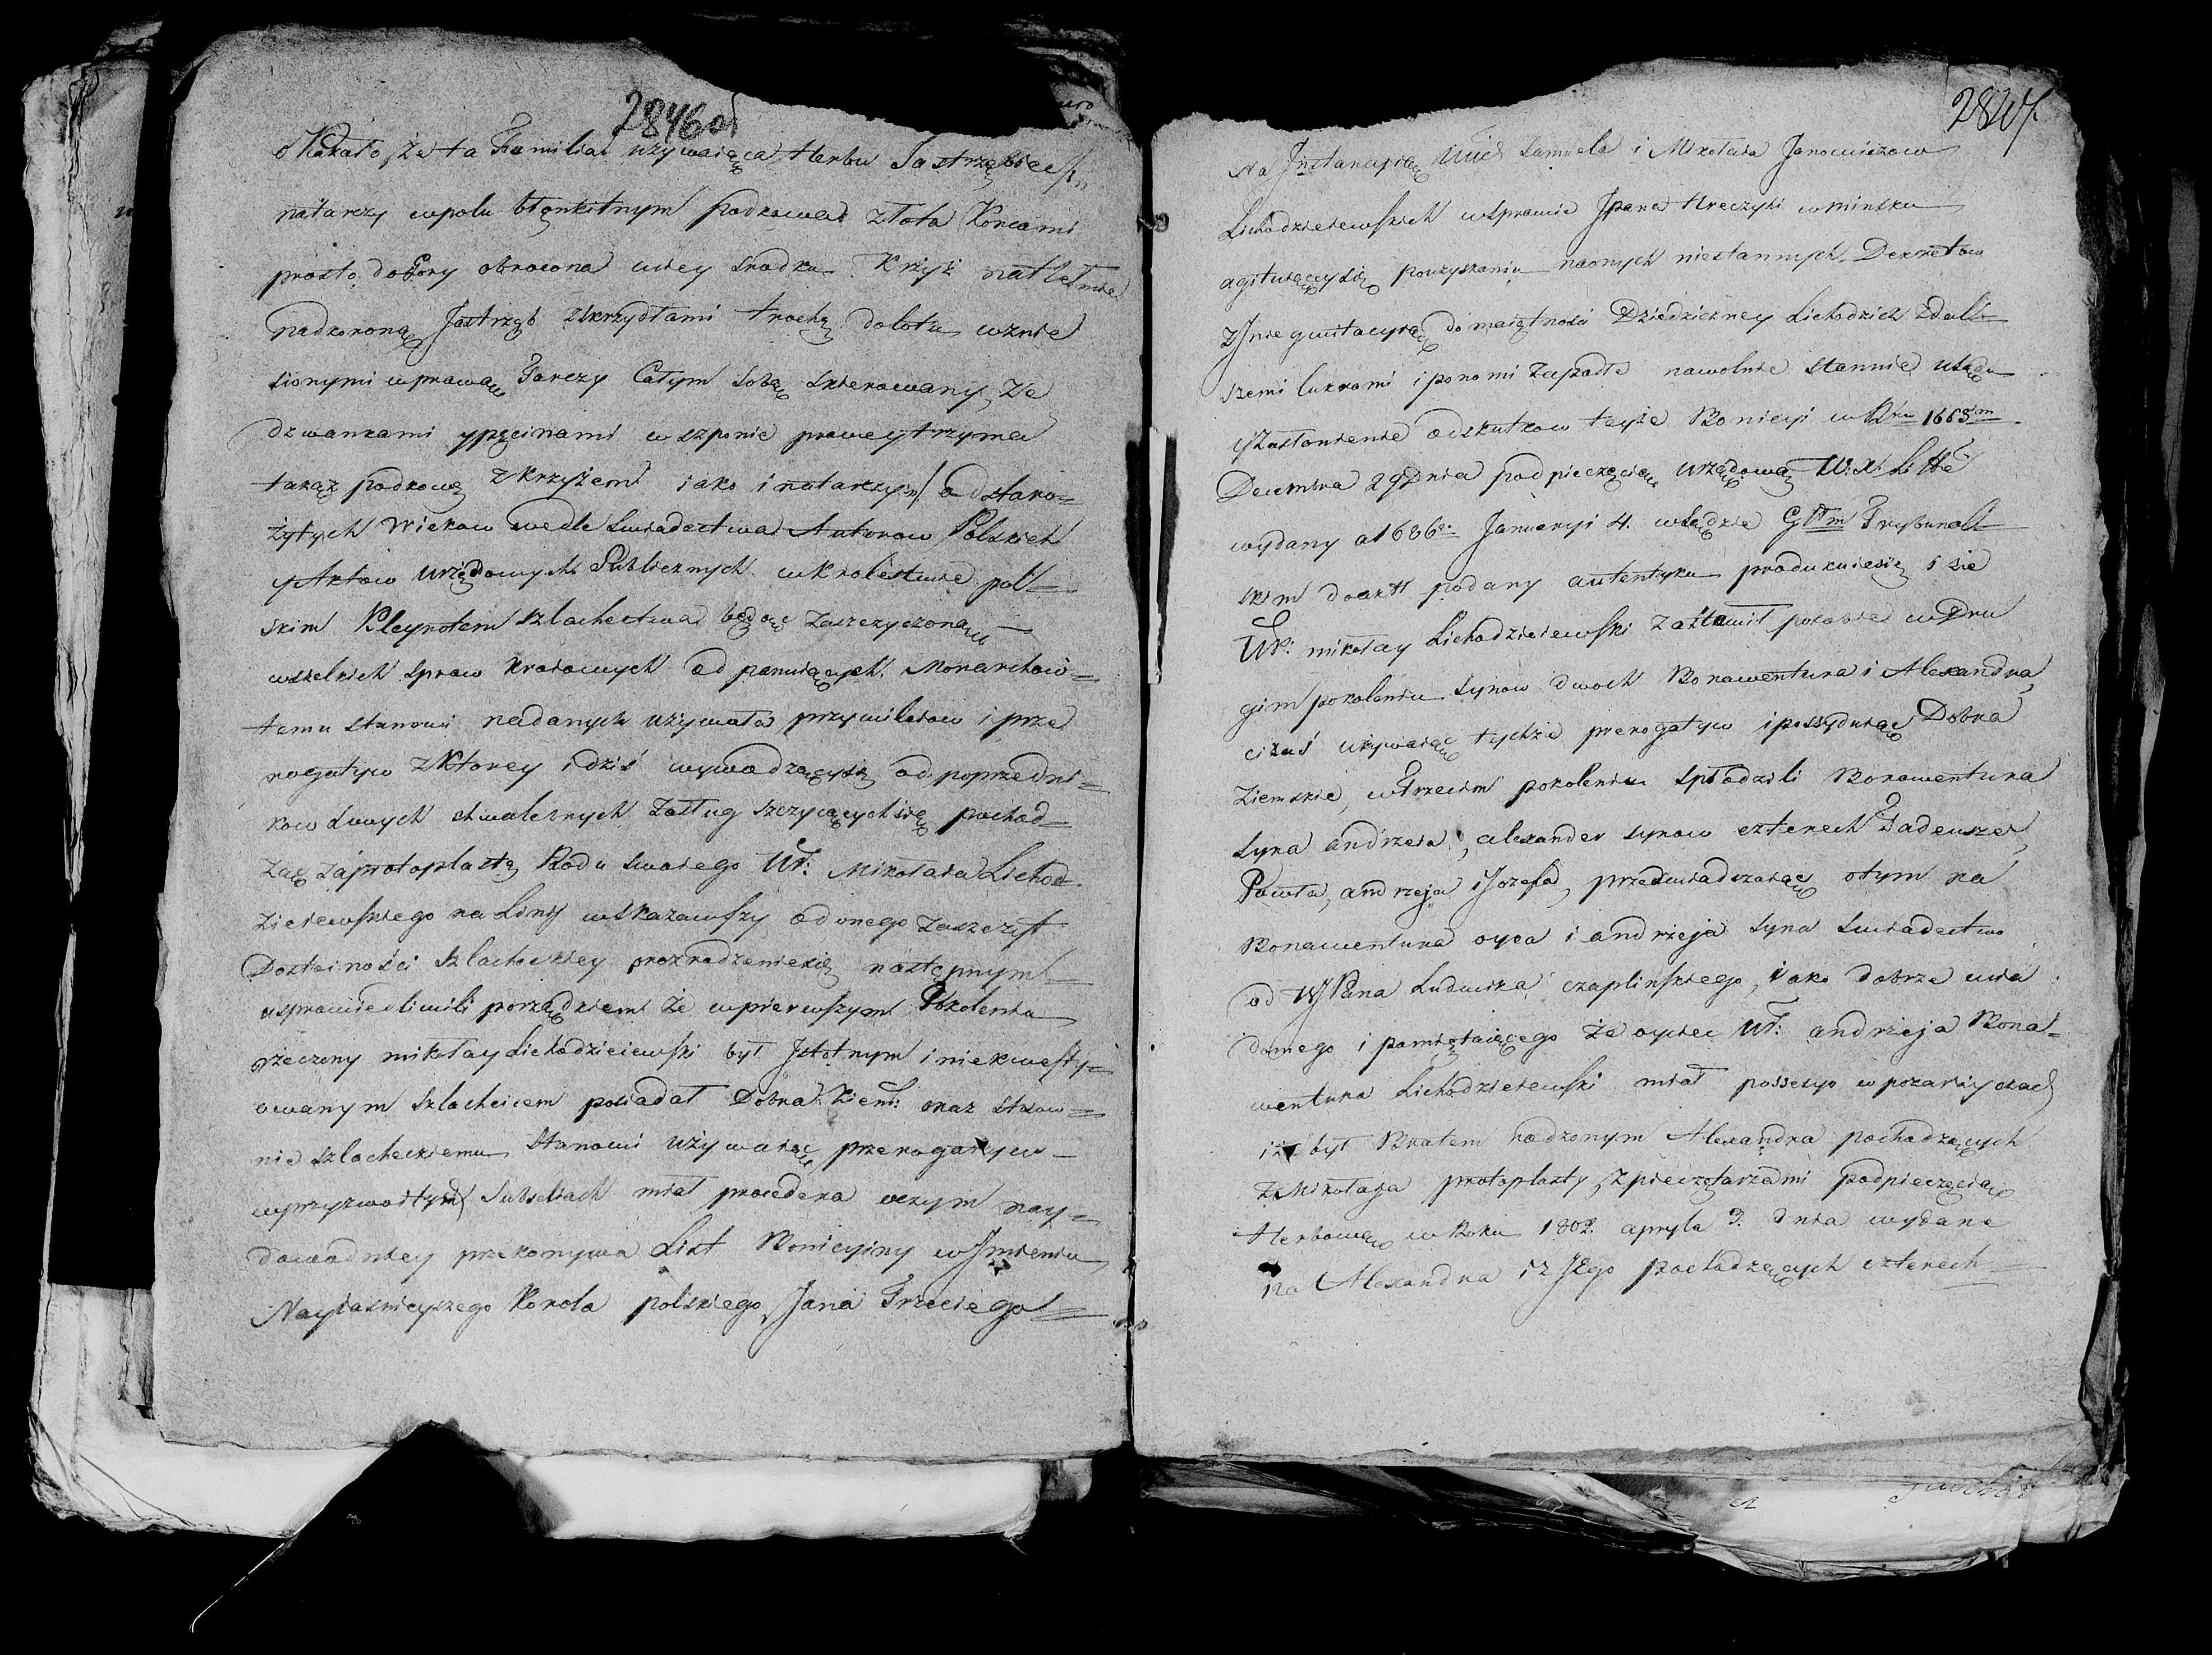 2846 об
okazało że ta Familia używaiąca Herbu Jastrzębiec /:
na tarczy w polu błęnkitnym podkowa złota Koncami
prosto do Gory obrocona w iey srodku Krzyż na Hełmie
nad koroną Jastrząb z skrzydłami trochę do lotu wznie
sionymi w prawą Tarczy Całym sobą skierowany, Ze
dzwankami y pęcinami w szponie prawey trzyma
takąż podkowę z krzyżem iako i na tarczy :/ od staro=
żytych Wiekow wedle swiadectwa Autorow Polskich
y Aktow Urzędowych Publicznych w Krolestwie pol=
skim Kleynotem szlachectwa będąc zaszczyczoną
wszelkich spraw kraiowych od panuiących Monarchow=
temu stanowi nadanych używała przywileiow i pre
rogatyw z Ktorey i dziś wywodzący się od poprzedni=
kow swych chwalebnych zasług szczycących się pochod=
zą za protoplastę Rodu swoiego Ur: Mikołaia Lichod=
zieiewskiego na Linij wskazawszy od onego zaszczyt
Dostoiności szlacheckiey prozrodzenie się następnym=
usprawiedliwili porządkiem że w pierwszym Pokoleniu
rzeczony mikołay Lichodzieiewski był Jstotnym i niekwesty=
owanym szlachcicem posiadał Dobra Ziem: oraz stosow=
nie szlacheckiemu Stanowi używaiąc prerogatyw=
w przyzwoitych Subseliach miał procedera o czym nay=
dowodniey przekonywa List Bonicyiny w Jmieniu
Nayiasnieyszego Korola polskiego Jana Trzeciego=
2847
Na Jnstancyią Samuela i Mikołaia Janowiczow
Lichodzieiewskich w sprawie Jpana Hreczyki w Minsku
agituiącey się po uzyskaniu na onych niestannych Dekretow
do maiętnosci Dziedziczney Lichodzich zdal=
szemi lukrami i ponomi zapadłe na wolnie stannie u sądu
y zasłonienie od skutkow teyże Bonicyi w Rku
Decembra 29 Dnia pod pieczęcią urzędową W: X: Litte
wydany a 1686. Januaryi 4. w sądzie Głłm Trybunal=
skim do akt podany autentyku produkuie się i sie
Ur: mikołay Lichodzieiewski zostawił po sobie w dru
gim pokoleniu synow dwoch Bonawentura i Alexandra,
ci zaś używaiąc tychże prerogatyw i possyduiąc Dobra
Ziemskie, w trzecim pokoleniu spłodzili Bonawentura
syna andrzeia, alexander synow czterech Tadeusza,
Pawła, andrzeja i Jozefa, przeswiadczaiąc o tym na
Bonawentura oyca i andrzeja syna swiadectwo
od WJPana Ludwika czaplinskiego, iako dobrze wia
domego i pamiętaiącego że oyciec Ur: andrzeja Bona=
wentura Lichodzieiewski miał possesyo w pozariyckach
i że był Bratem rodzonym Alexandra pochodzących
z Mikołaja protoplasty, z pieczętarzami pod pieczęcią
Herbową w Roku 1802. apryla 3. dnia wydane
na Alexandra i z Jego pochodzących czterech